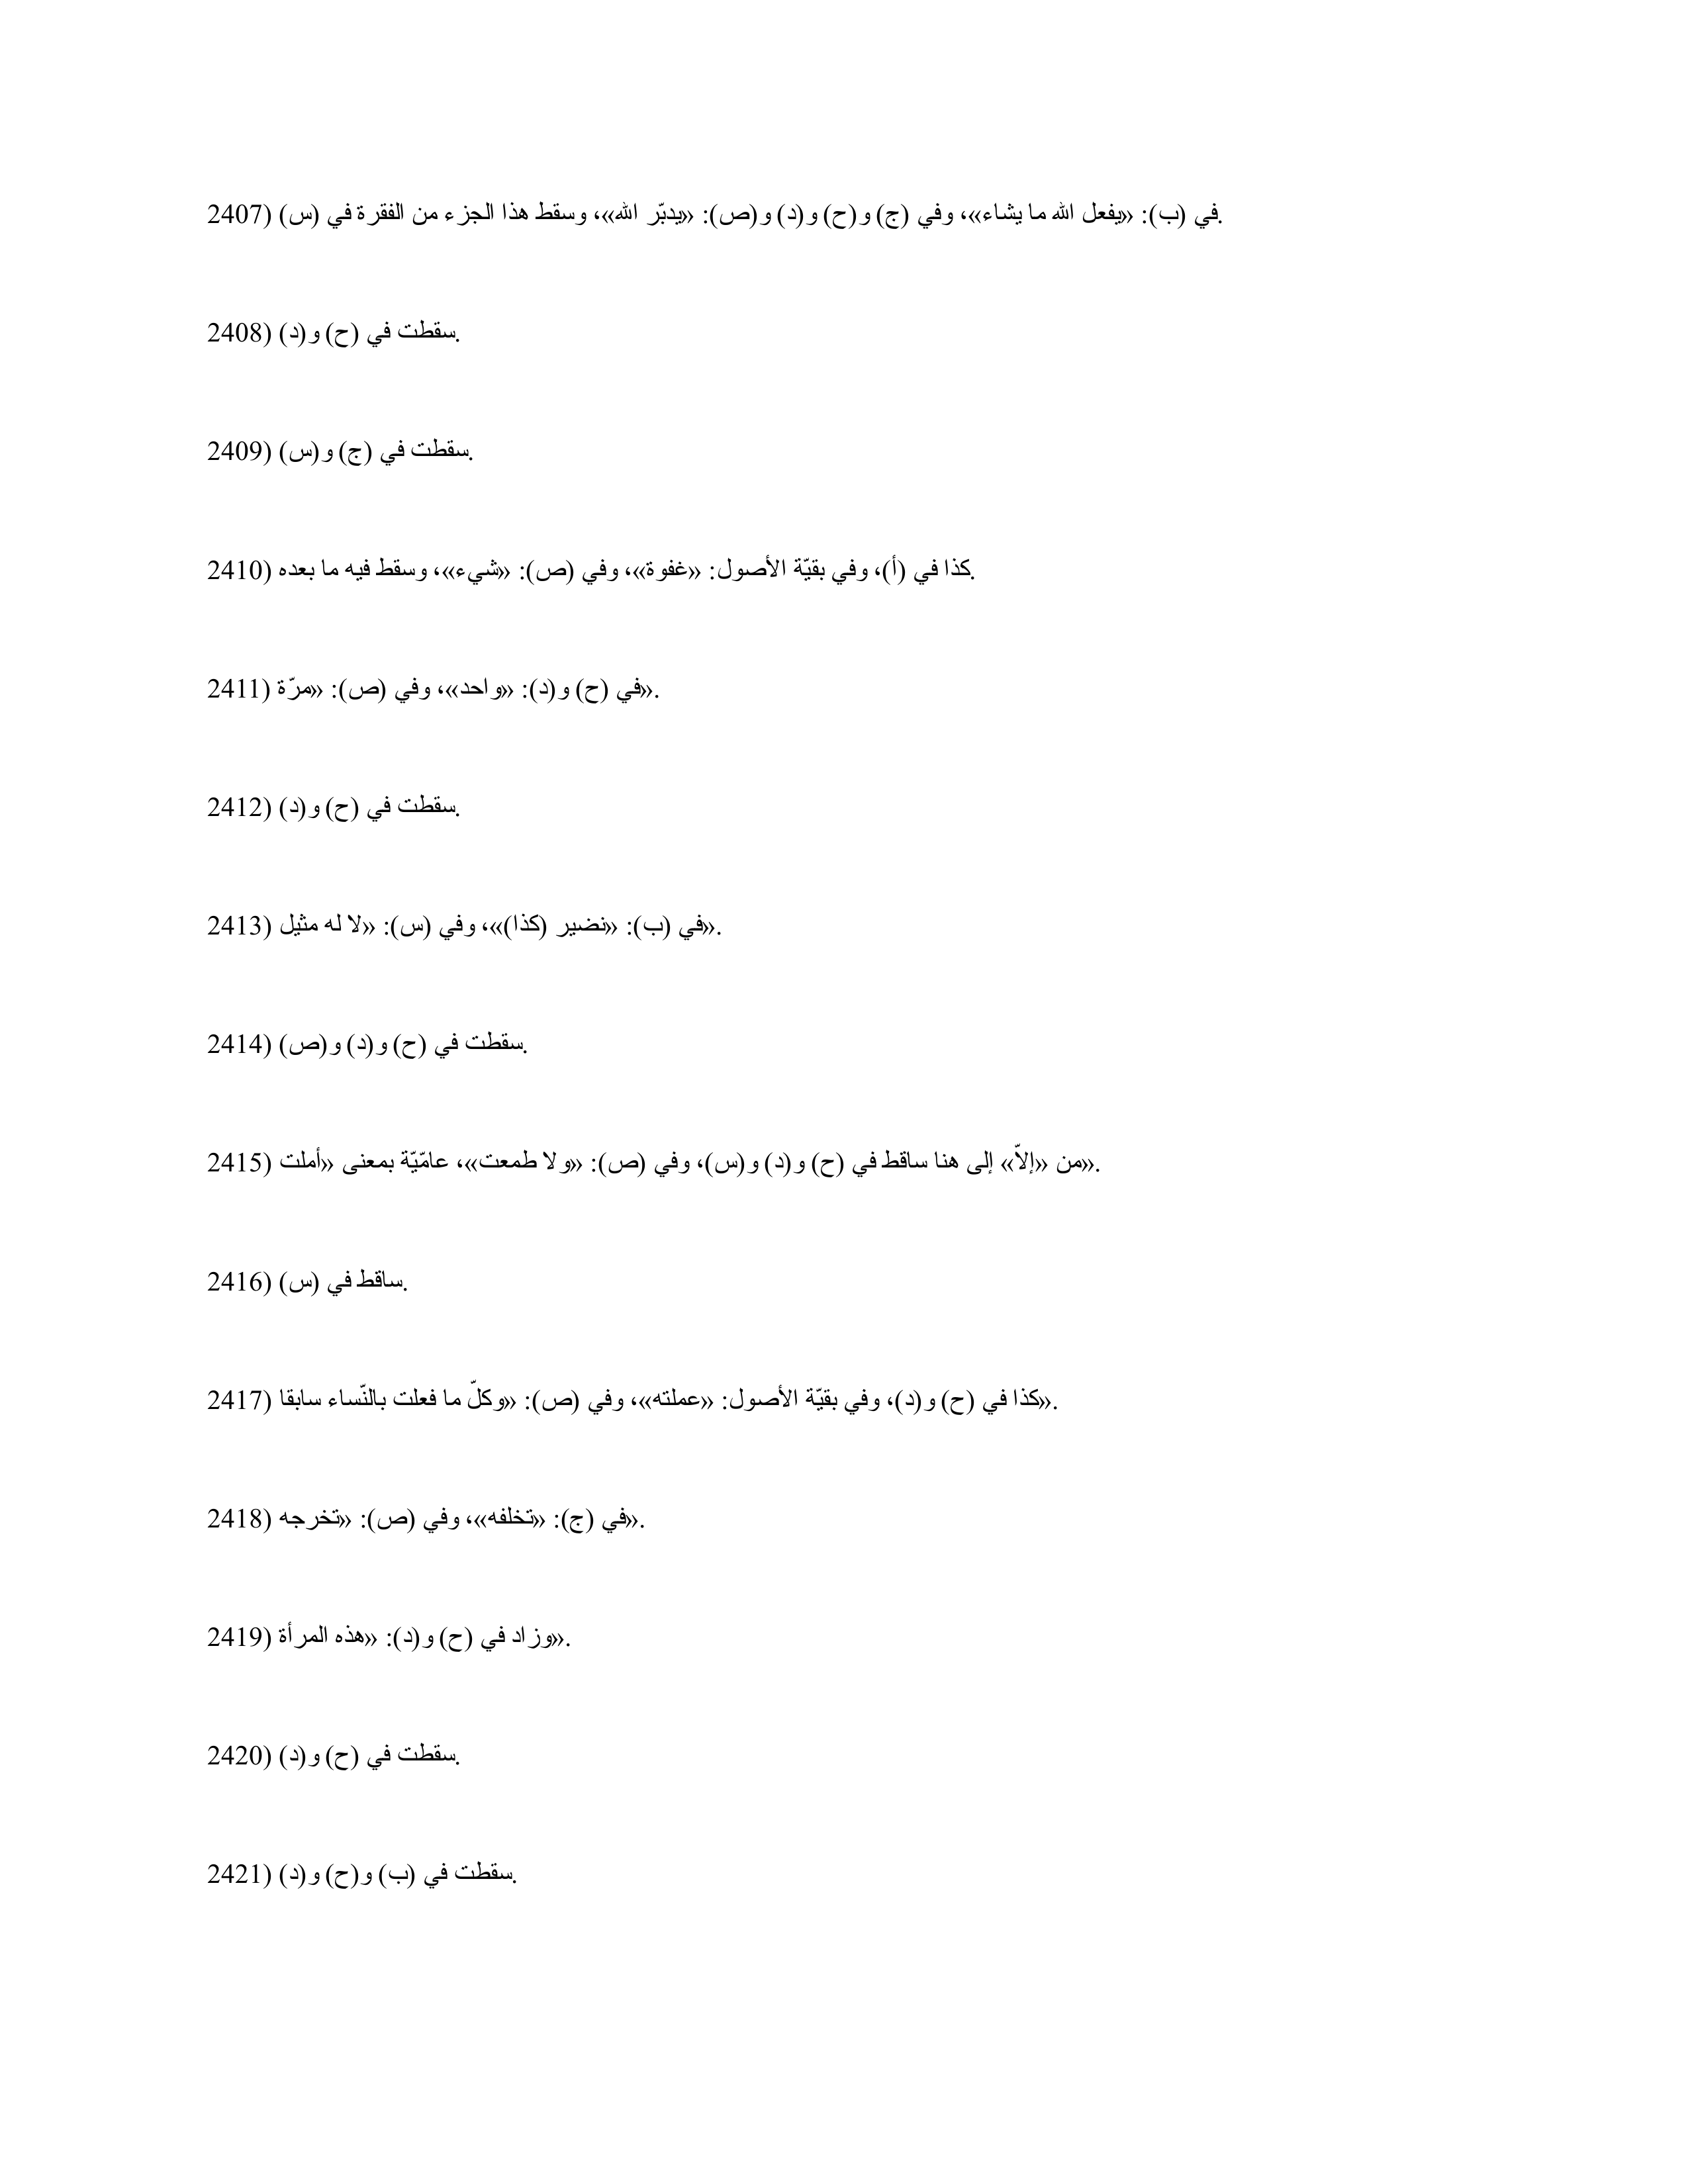 2407) في (ب): «يفعل الله ما يشاء»، وفي (ج) و(ح) و(د) و(ص): «يدبّر الله»، وسقط هذا الجزء من الفقرة في (س).
2408) سقطت في (ح) و(د).
2409) سقطت في (ج) و(س).
2410) كذا في (أ)، وفي بقيّة الأصول: «غفوة»، وفي (ص): «شيء»، وسقط فيه ما بعده.
2411) في (ح) و(د): «واحد»، وفي (ص): «مرّة».
2412) سقطت في (ح) و(د).
2413) في (ب): «نضير (كذا)»، وفي (س): «لا له مثيل».
2414) سقطت في (ح) و(د) و(ص).
2415) من «إلاّ» إلى هنا ساقط في (ح) و(د) و(س)، وفي (ص): «ولا طمعت»، عامّيّة بمعنى «أملت».
2416) ساقط في (س).
2417) كذا في (ح) و(د)، وفي بقيّة الأصول: «عملته»، وفي (ص): «وكلّ ما فعلت بالنّساء سابقا».
2418) في (ج): «تخلفه»، وفي (ص): «تخرجه».
2419) وزاد في (ح) و(د): «هذه المرأة».
2420) سقطت في (ح) و(د).
2421) سقطت في (ب) و(ح) و(د).